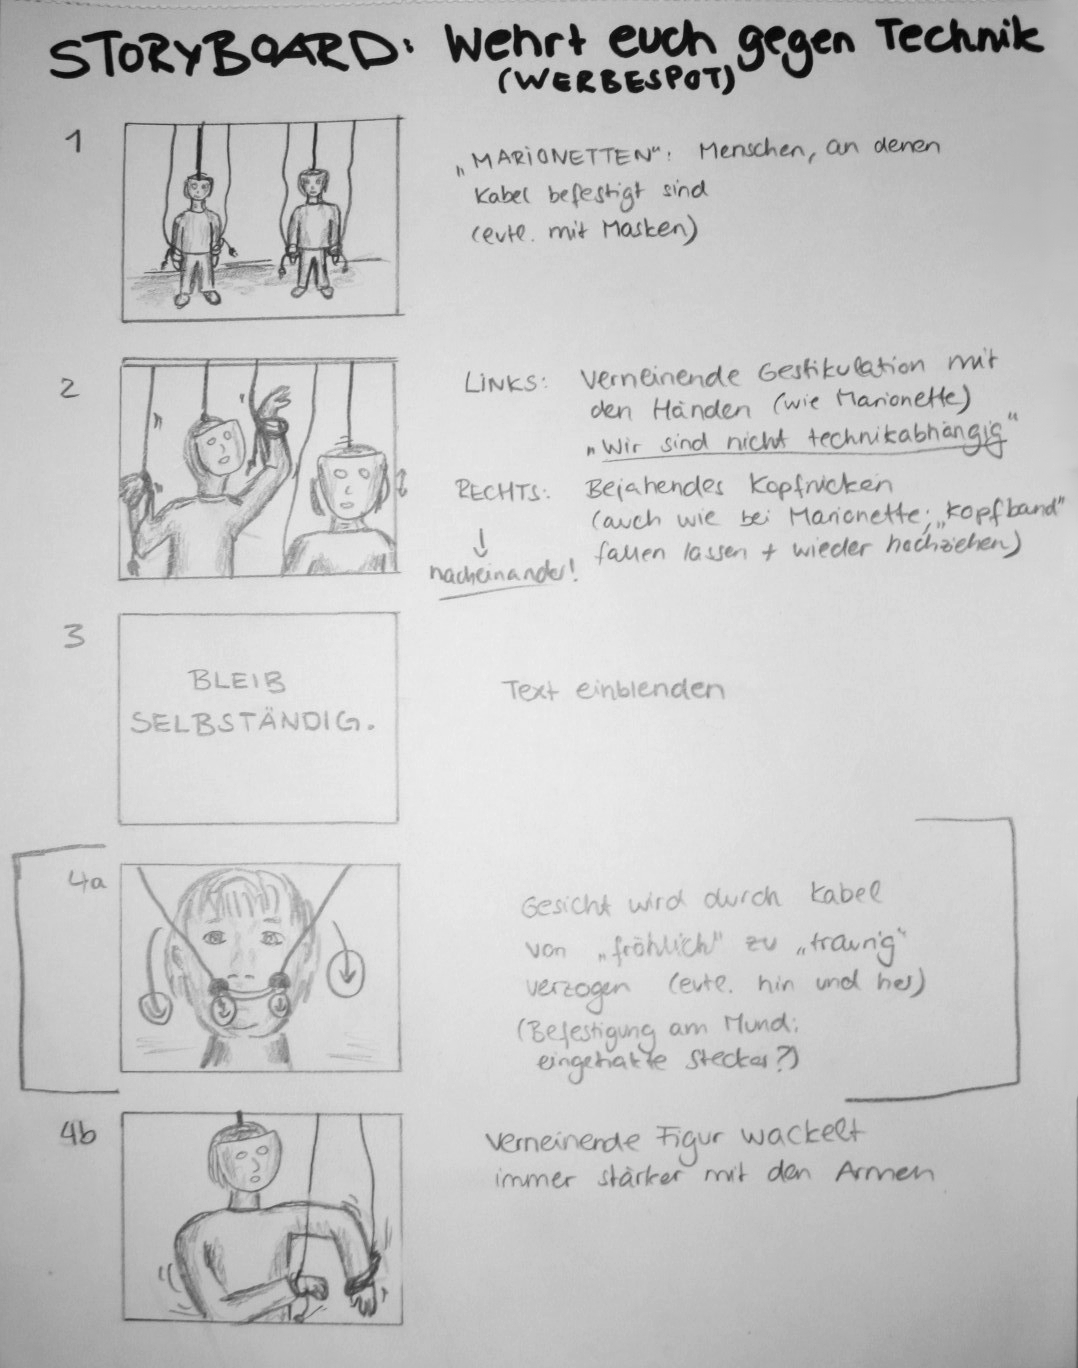 STORYBOARD: Wehrt euch gegen Technik
(WERBESPOT)
1
„MARIONETTEN": Menschen, an denen
Kabel befestigt sind
(evtl. mit Masken)
2
LINKS: Verneinende Gestikulation mit
den Händen (wie Marionette)
„Wir sind nicht technikabhängig"
RECHTS: Bejahendes Kopfnicken
(auch wie bei Marionette; „Kopfband"
fallen lassen + wieder hochziehen)
nacheinander!
3
BLEIB
SELBSTÄNDIG.
Text einblenden
4a
Gesicht wird durch Kabel
von „fröhlich" zu „traurig"
verzogen (evtl. hin und her)
(Befestigung am Mund:
eingehakte Stecker?)
4b
Verneinende Figur wackelt
immer stärker mit den Armen